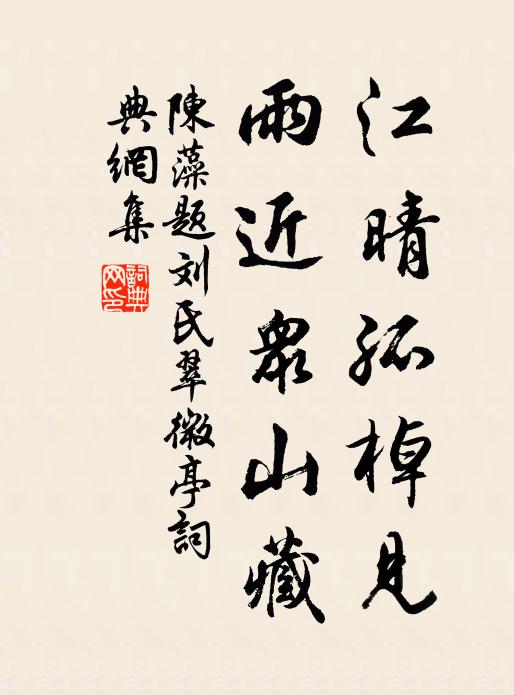 江晴孤棹見
雨近衆山藏
陳藻題刘氏翠微亭詞
典網集
詞典
网印